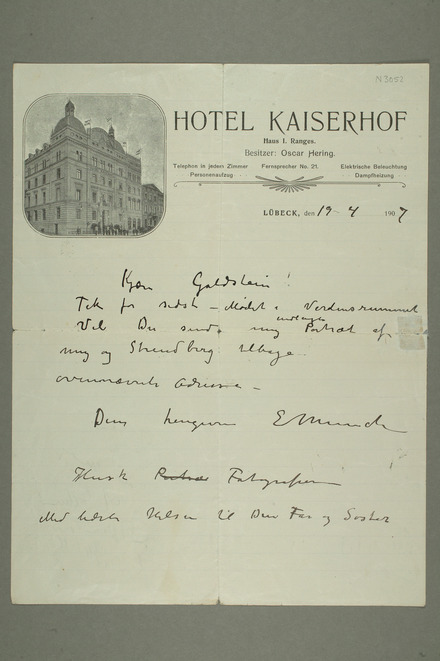 N 3052
HOTEL KAISERHOF
Haus I. Ranges.
Besitzer: Oscar Hering.
Telephon in jedem Zimmer Fernsprecher No. 21. Elektrische Beleuchtung
Personenaufzug Dampfheizung
LÜBECK, den 19-4 1907
Kjære Goldstein!
Tak for sidst – Mødet i Verdensrummet
Vil De sende mig Portræt af
mig og Strindberg tilbage
ovennævnte Adresse –
Deres hengivne E Munch
Husk Fotografien
Med bedste Hilsen til Deres Far og Søster